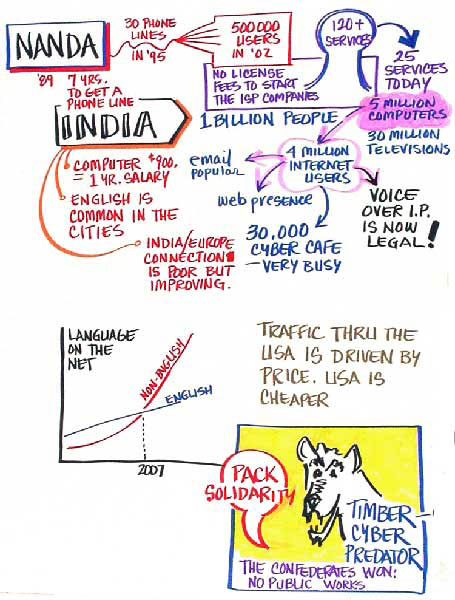 NANDA
30 PHONE
LINES
IN '95
500000
USERS
IN '02
120+
SERVICES
25
SERVICES
TODAY
'89 7 YRS.
TO GET A
PHONE LINE
NO LICENSE
FEES TO START
THE ISP COMPANIES
INDIA
1 BILLION PEOPLE
5 MILLION
COMPUTERS
30 MILLION
TELEVISIONS
COMPUTER $900.
= 1 YR. SALARY
ENGLISH IS
COMMON IN THE
CITIES
INDIA/EUROPE
CONNECTION
IS POOR BUT
IMPROVING.
email
popular
4 MILLION
INTERNET
USERS
web presence
30,000
CYBER CAFE
– VERY BUSY
VOICE
OVER I.P.
IS NOW
LEGAL!
LANGUAGE
ON THE
NET
NON-ENGLISH
ENGLISH
2007
TRAFFIC THRU THE
USA IS DRIVEN BY
PRICE. USA IS
CHEAPER
PACK
SOLIDARITY
TIMBER
CYBER
PREDATOR
THE CONFEDERATES WON:
NO PUBLIC WORKS